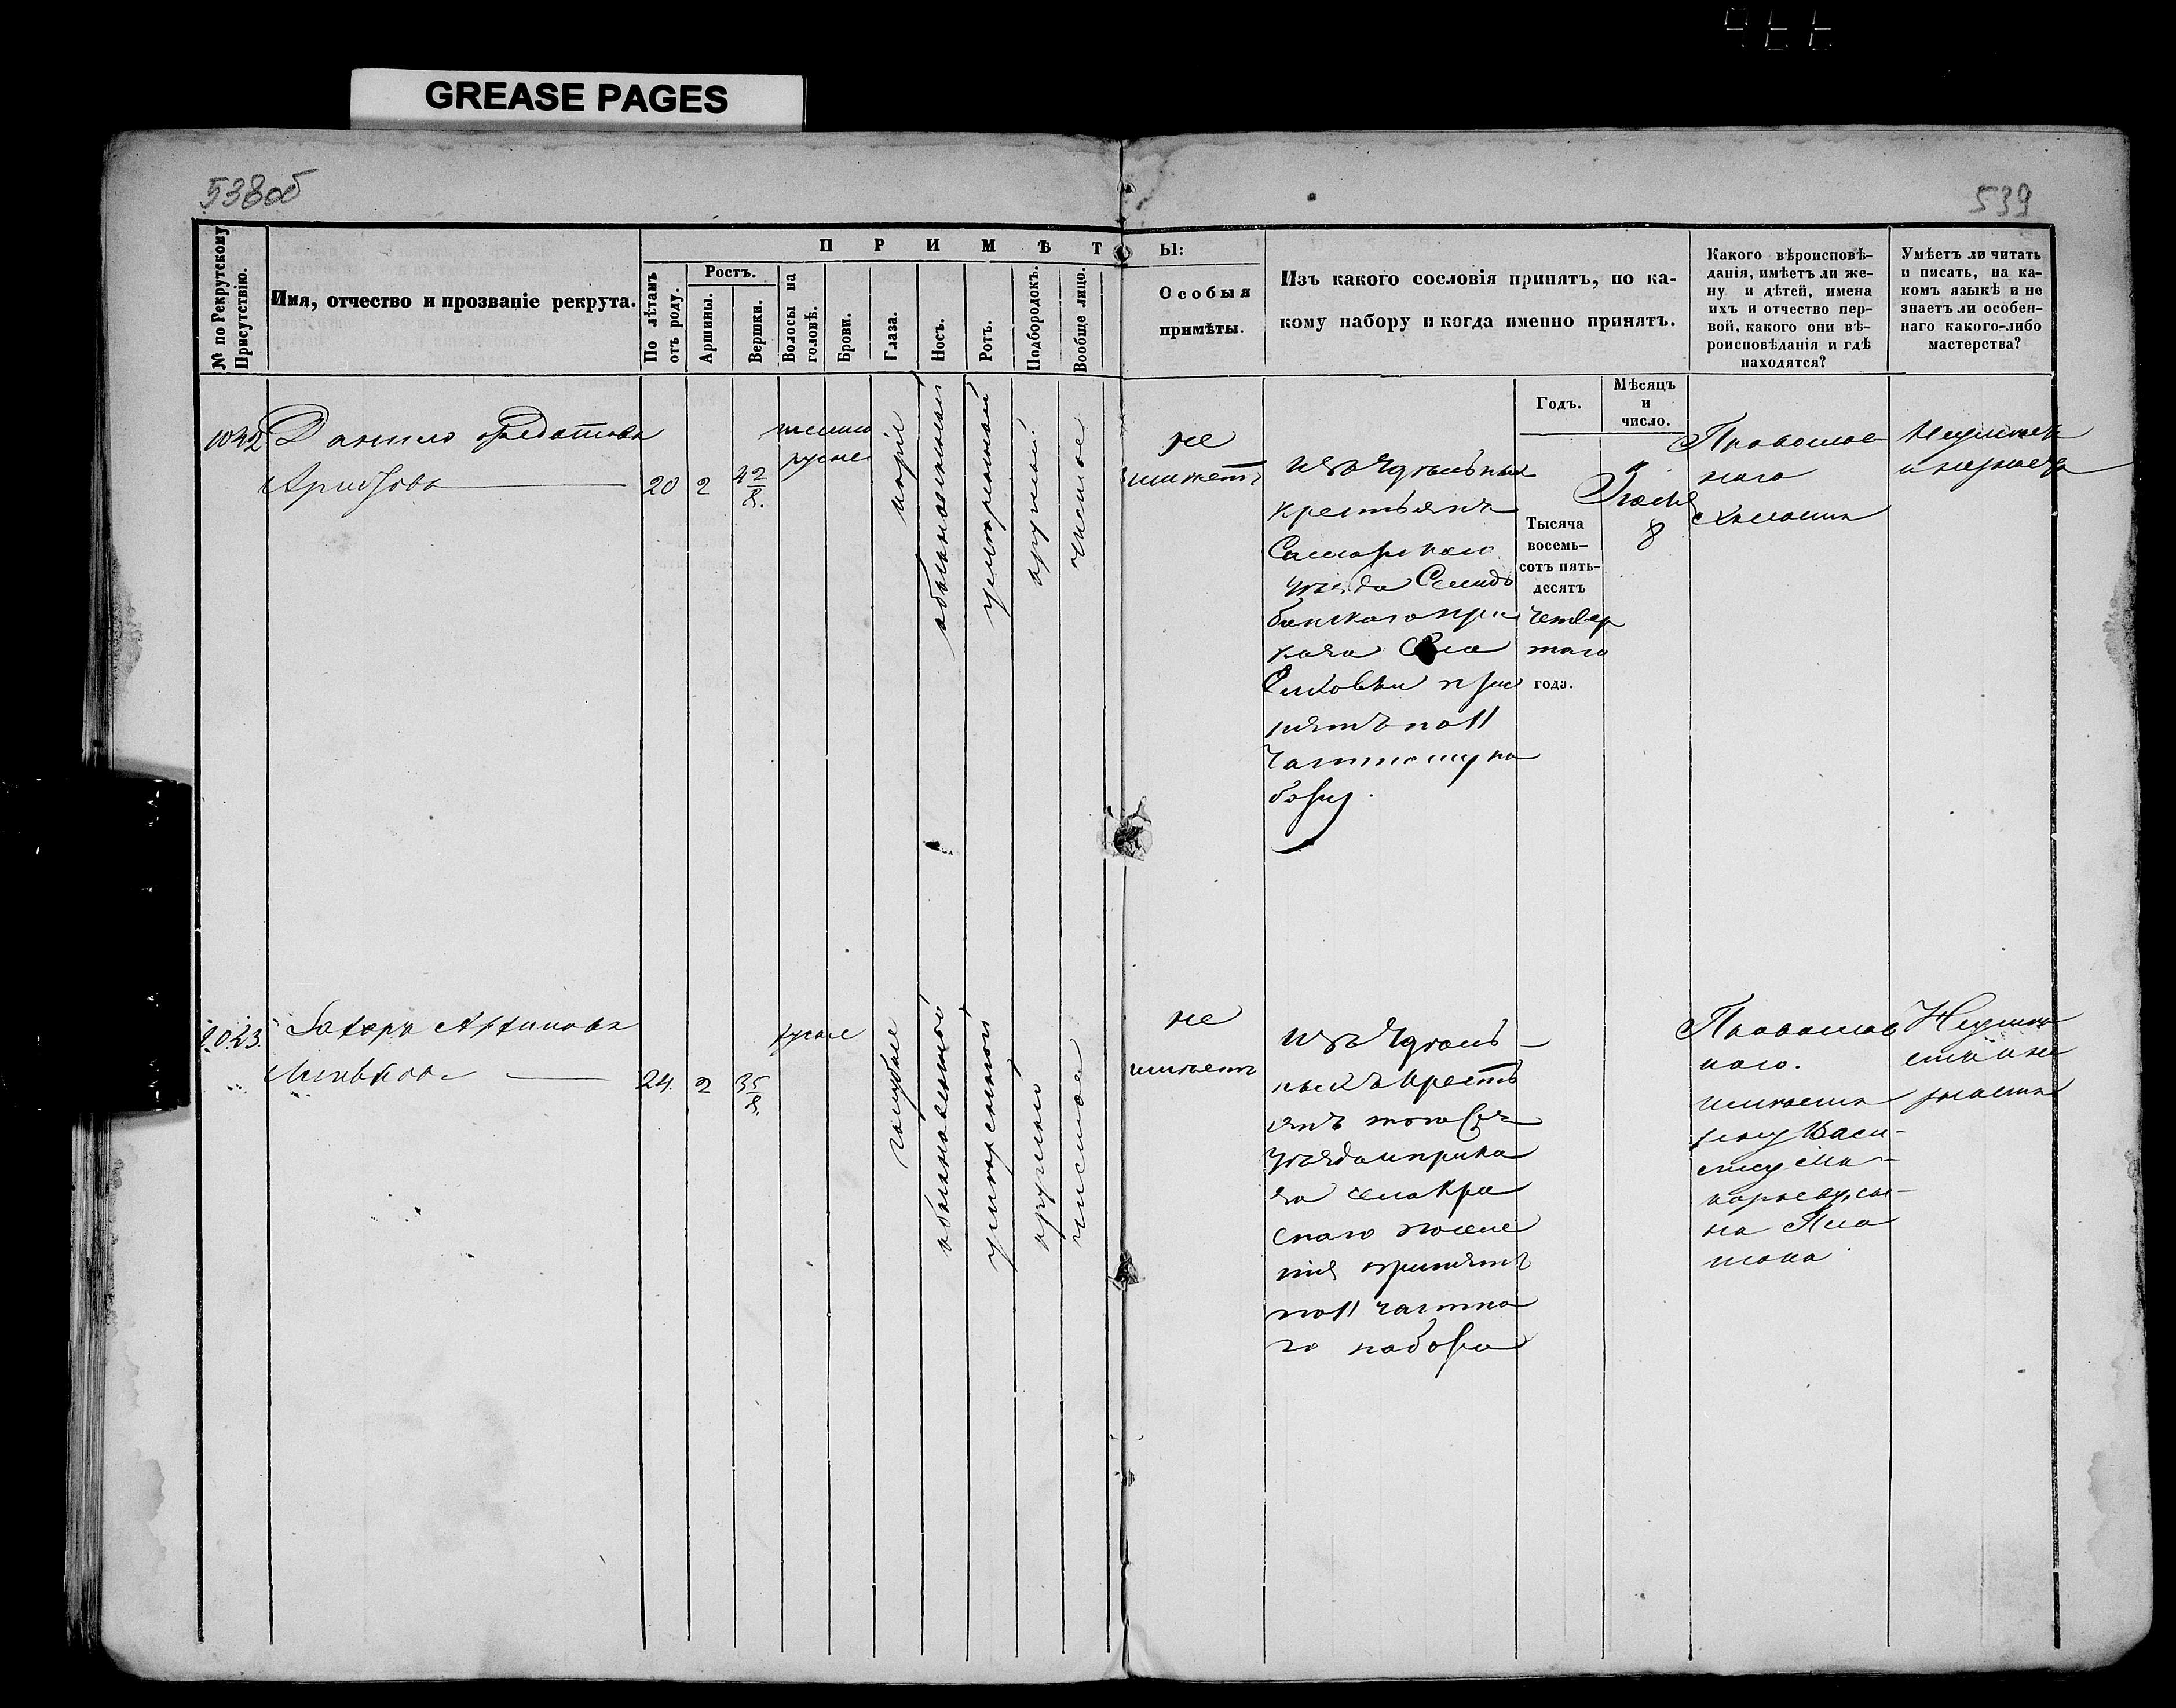 GREASE PAGES
538об
539
№ по Рекрутскому Присутствію.
Имя, отчество и прозваніе рекрута.
ПРИМѢТЫ:
По лѣтамъ отъ роду.
Ростъ.
Аршины.
Вершки.
Волосы на головѣ.
Брови.
Глаза.
Носъ.
Ротъ.
Подбородокъ.
Вообще лицо.
Особыя
примѣты.
Изъ какого сословія принятъ, по ка-
кому набору и когда именно принятъ.
Годъ.
Мѣсяцъ
и
число.
Какого вѣроисповѣ-
данія, имѣетъ ли же-
ну и дѣтей, имена
ихъ и отчество пер-
вой, какого они вѣ-
роисповѣданія и гдѣ
находятся?
Умѣетъ ли читать
и писать, на ка-
комъ языкѣ и не
знаетъ ли особен-
наго какого-либо
мастерства?
Данило Федотовъ
20
2
4 2/8.
темно
русые
каріе
обыкновенный
умѣренный
круглый
чистое
не
имѣетъ
изъ Удѣльныхъ
крестьянъ
Самарскаго
уѣзда
приказа
принятъ по 11
частному на
бору.
Тысяча
восемь-
сотъ пять-
десятъ
четвер
таго
года.
8
Православ
наго
холостъ
1023.
Захаръ
24.
2
3 5/8.
русые
голубые
обыкновенный
умѣренный
круглый
чистое
не
имѣетъ
изъ Удѣль-
ныхъ кресть
янъ того же
уѣзда и прика
за села Кра
снаго поселе
нія принятъ
по 11 частна
го набора
Православ
наго.
имѣетъ
жену Васи-
лису Ма-
карьеву, сы-
на Пла
тона.